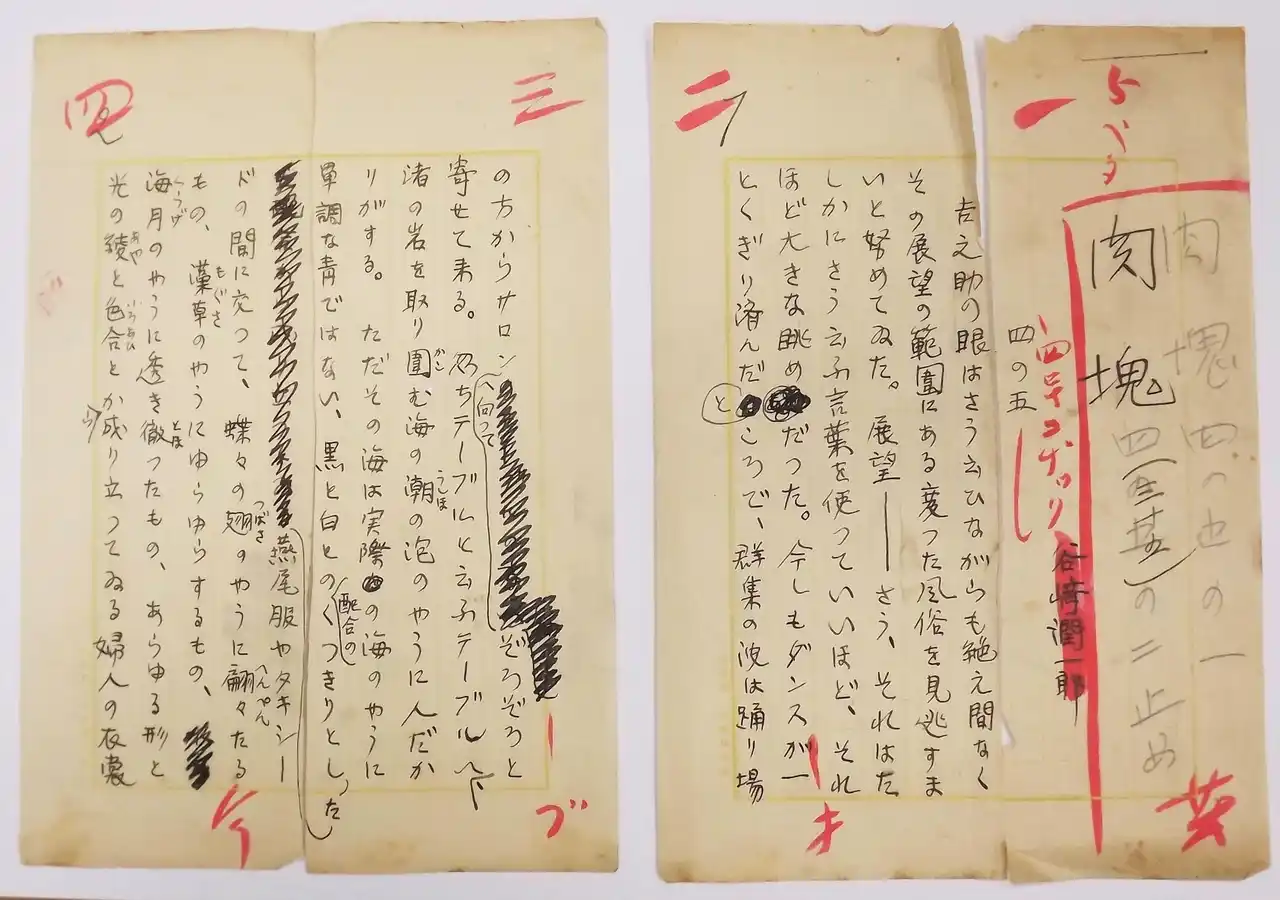 一
二
三
四
5パク
肉塊
四の五
四号ゴチック
谷崎潤一郎
肉塊 四の五の一
四(五)の二止め
吉之助の眼はさう云ひながらも絶え間なく
その展望の範囲にある変つた風俗を見逃すま
いと努めてゐた。展望――さう、それはた
しかにさう云ふ言葉を使つていいほど、それ
ほど大きな眺めだつた。今しもダンスが一
とくぎり済んだところで、群集の波は踊り場
の方からサロンへ向つてぞろぞろと
寄せて来る。忽ちテーブルと云ふテーブルは
渚の岩を取り囲む海の潮の泡のやうに人だか
りがする。ただその海は実際の海のやうに
単調な青ではない、黒と白とのくつきりとした
配合の燕尾服やタキシー
ドの間に交つて、蝶々の翅のやうに翩々たる
もの、藻草のやうにゆらゆらするもの、
海月のやうに透き徹つたもの、あらゆる形と
光の綾と色合とから成り立つてゐる婦人の衣裳